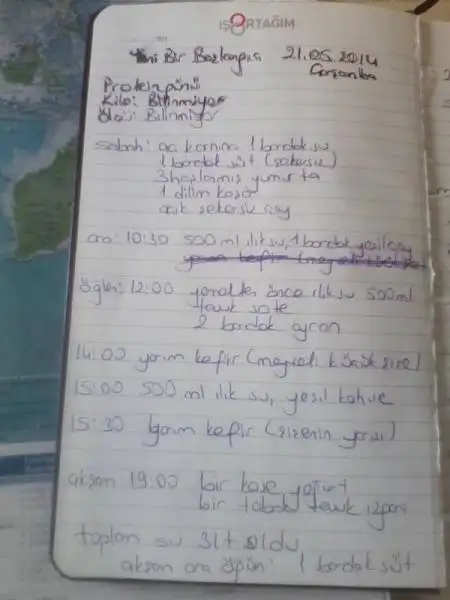 İŞORTAĞIM
Yeni Bir Başlangıç 21.05.2014
Çarşamba
Protein günü
Kilo: Bilinmiyor
Ölçü: Bilinmiyor
sabah: aç karnına 1 bardak su
1 bardak süt (şekersiz)
3 haşlanmış yumurta
1 dilim kaşar
açık şekersiz çay
ara: 10:30 500 ml ılık su, 1 bardak yeşil çay
yarım kefir (meyveli
öğlen: 12:00 yemekten önce ılık su 500 ml
tavuk sote
2 bardak ayran
14:00 yarım kefir (meyveli küçük şişe)
15:00 500 ml ılık su, yeşil kahve
15:30 Yarım kefir (şişenin yarısı)
akşam 19:00 bir kase yoğurt
bir tabak tavuk ızgara
toplam su 3 lt oldu
akşam ara öğün: 1 bardak süt